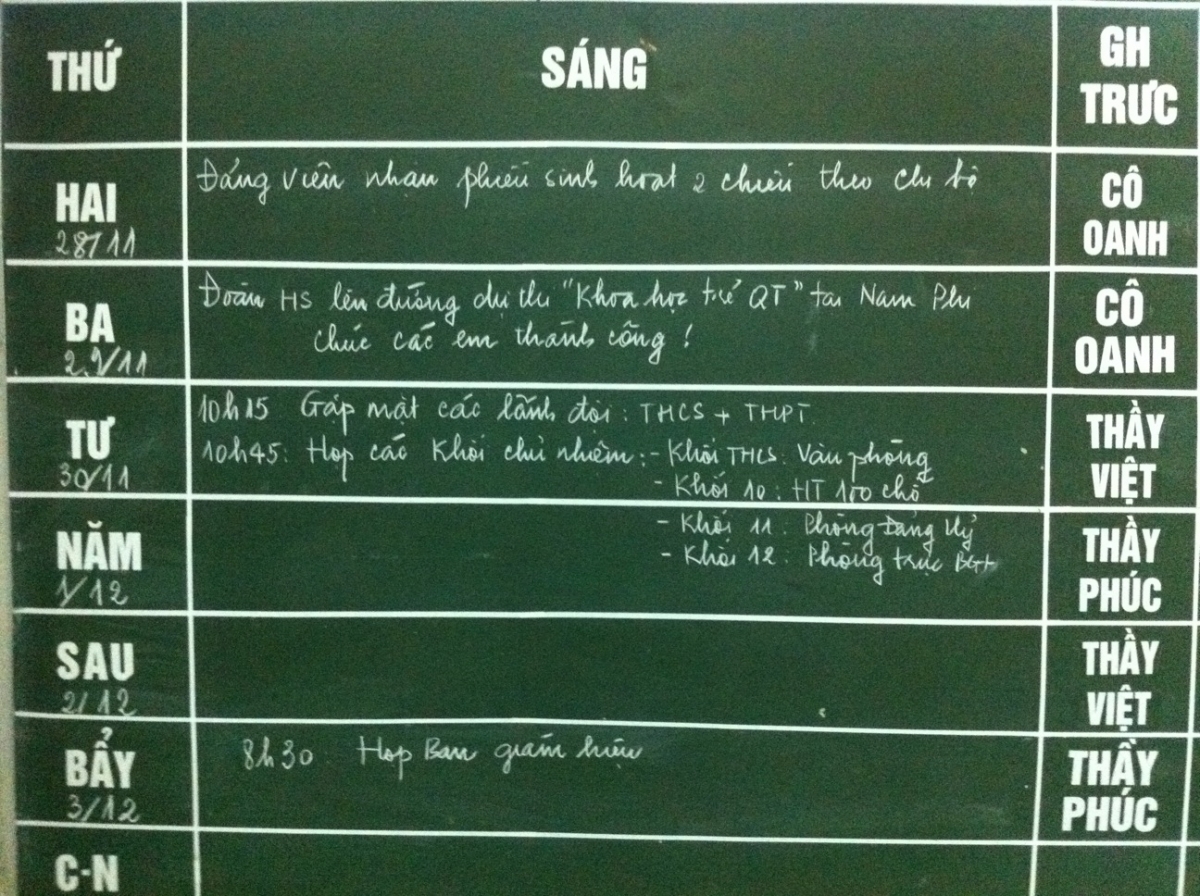 THỨ SÁNG GH TRƯC
HAI 28/11 Đảng viên nhận phiếu sinh hoạt 2 chiều theo chi bộ CÔ OANH
BA 29/11 Đoàn HS lên đường dự thi "Khoa học trẻ QT" tại Nam Phi CÔ OANH
chúc các em thành công !
TƯ 30/11 10h15 Gặp mặt các lãnh đội : THCS + THPT. THẦY VIỆT
10h45: Họp các Khối chủ nhiệm : - Khối THCS: Văn phòng
- Khối 10 : HT 100 chỗ
NĂM 1/12 - Khối 11 : Phòng Đảng Uỷ THẦY PHÚC
- Khối 12 : Phòng trực BGH
SAU 2/12 THẦY VIỆT
BẨY 3/12 8h30 : Họp Ban giám hiệu THẦY PHÚC
C-N